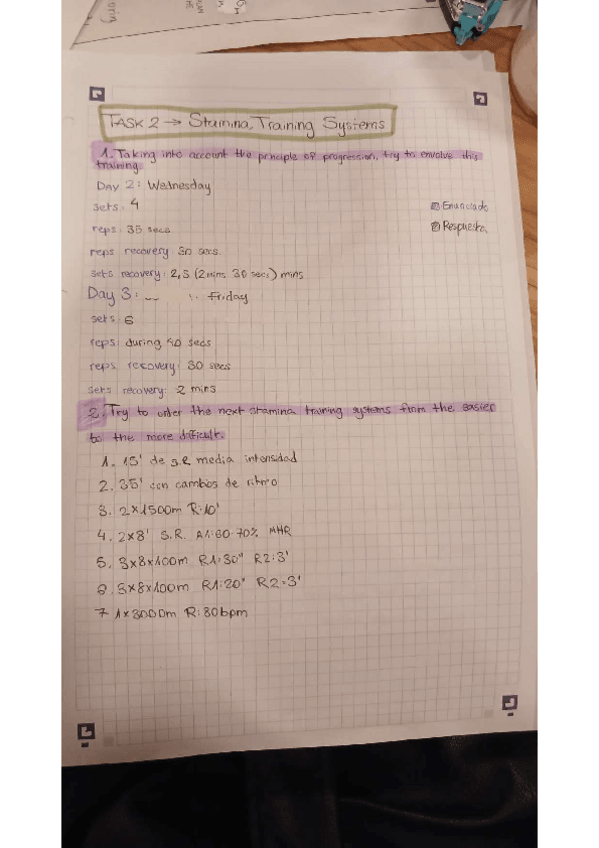 TASK 2 → Stamina Training Systems
1. Taking into account the principle of progression, try to envolve this
training.
DAY 2: Wednesday
sets: 4
Enunciado
reps: 35 secs
Respuesta
reps recovery: 30 secs.
sets recovery: 2,5 (2mins 30 secs) mins
Day 3: Friday
sets: 6
reps: during 40 secs
reps recovery: 30 secs
sets recovery: 2 mins
2. Try to order the next stamina training systems from the easier
to the more difficult.
1. 15' de s.R media intensidad
2. 35' con cambios de ritmo
3. 2x1500m R:10'
4. 2x8' S.R. A1:60-70% MHR
5. 3x8x100m R1:30" R2:3'
6. 3x8x100m R1:20" R2:3'
7 1x3000m R:80bpm